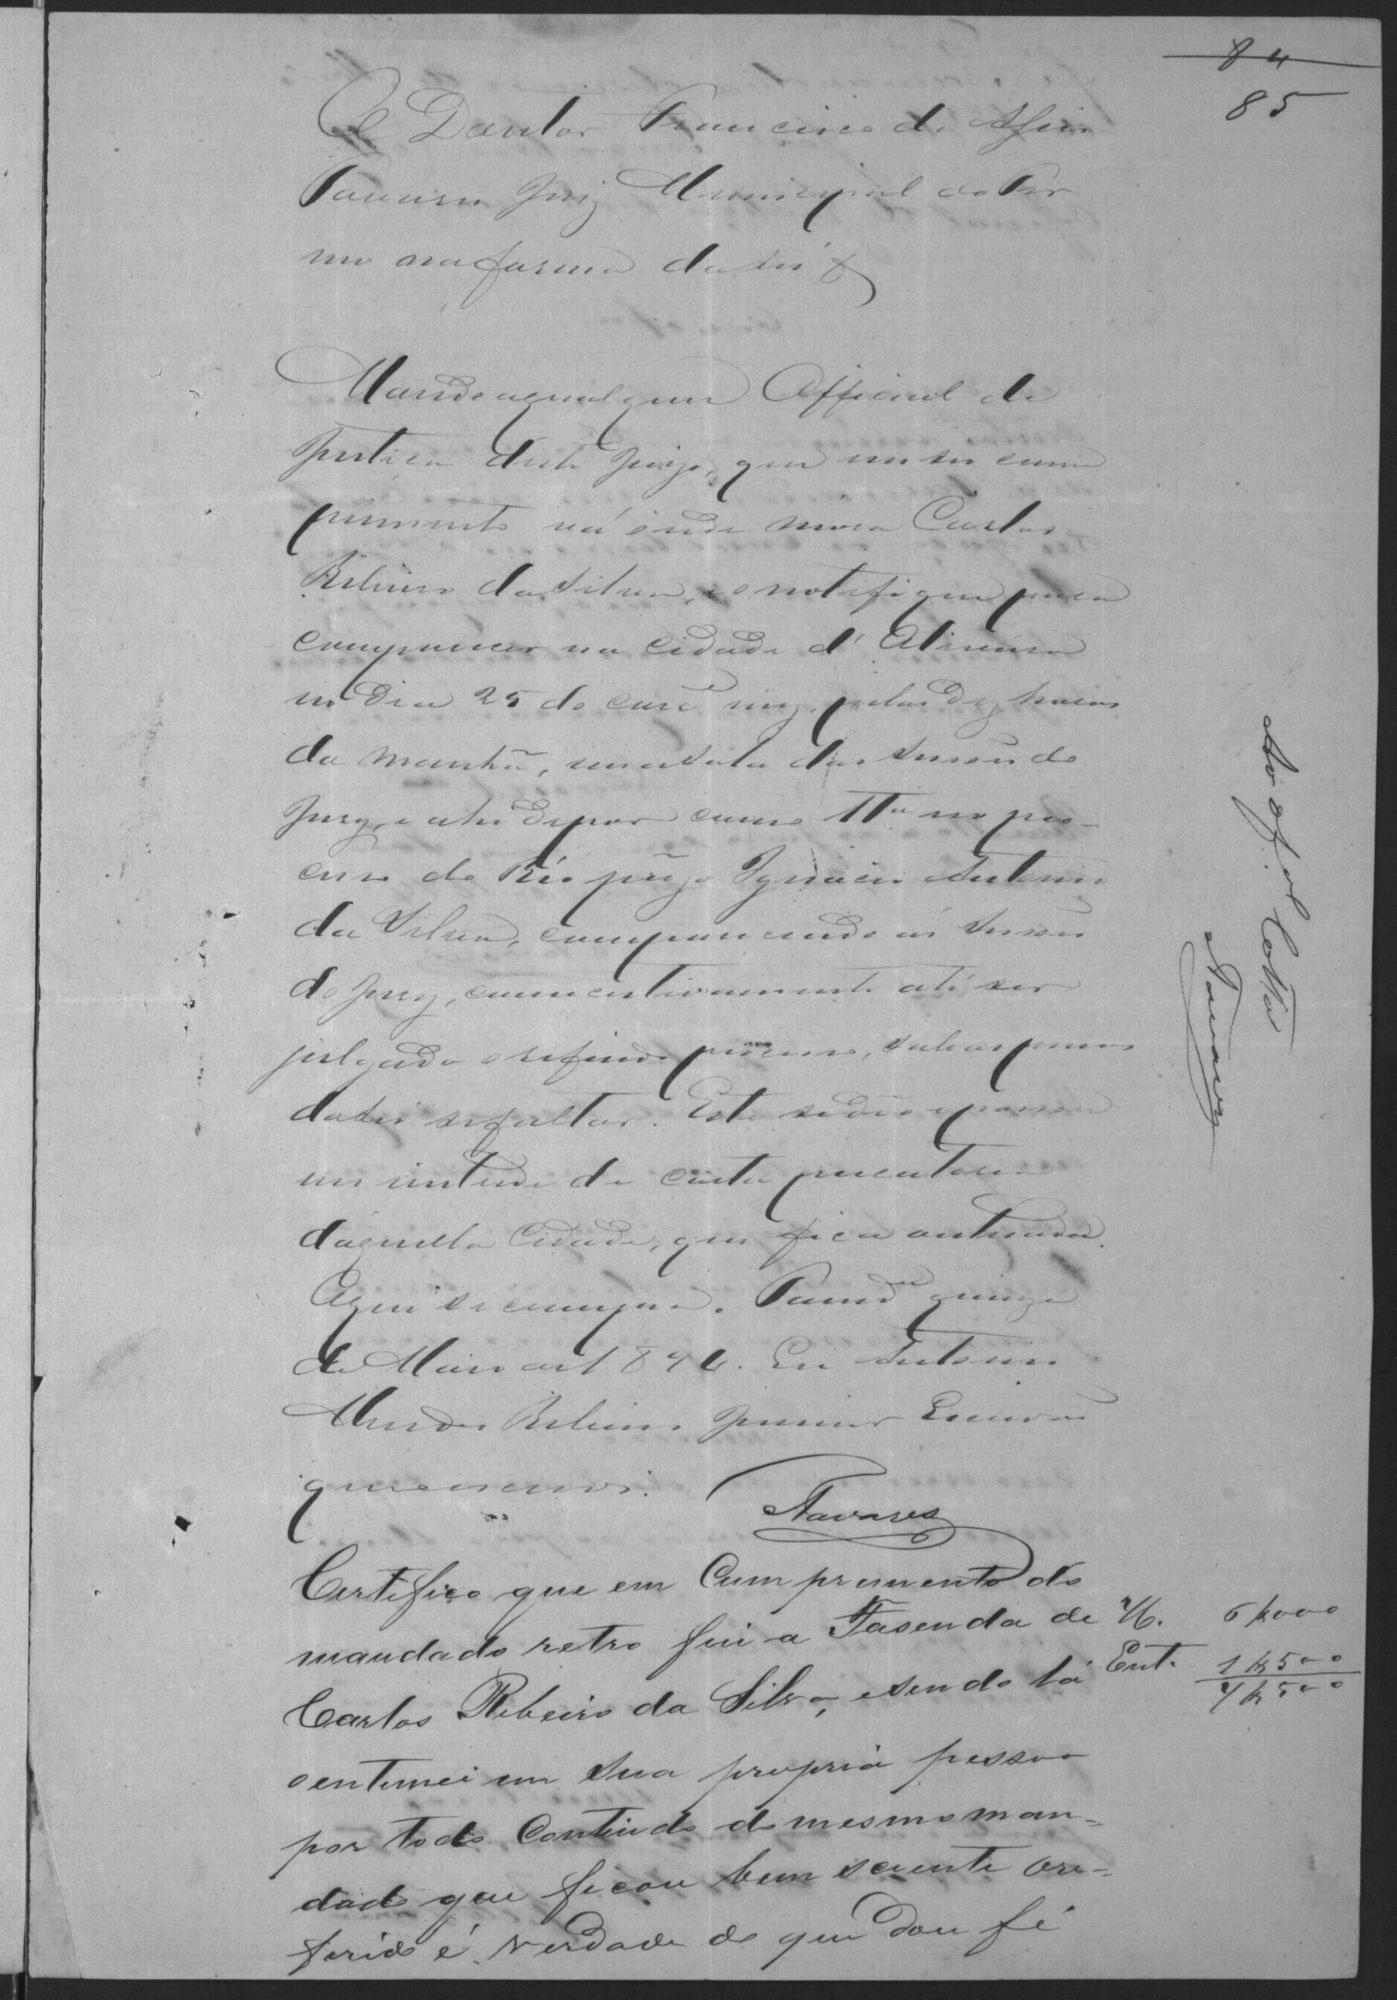 84
85
O Doutor Francisco de Assis
Tavares Juiz Municipal do Ter
mo na forma da Lei &
Mando a qualquer Official de
Justiça deste Juizo, que em seu cum
primento vá onde mora Carlos
Ribeiro da Silva, e o notifique para
comparecer na cidade d'
no dia 25 do corre mez, pelas dez horas
da manhã, na sala das sessões do
Jury, e ahi depor como ttª no pro-
cesso do Réo prezo Ignacio Antonio
da Silva, comparecendo ás sessões
do Jury, consecutivamente até ser
julgado o referido processo, sob as penas
da Lei se faltar. Este se deo e passou
em virtude de carta precatoria
daquella Cidade, que fica autuada.
O que se cumpra. quinze
de Maio de 18 Eu Antonio
Mendes Ribeiro Junior Escrivão
que escrevi.
Tavares
Certifico que em Cumprimento do
mandado retro fui a Fasenda de
Carlos Ribeiro da Silva, e sendo lá
o entimei em sua propria pessoa
por todo Contiudo do mesmo man-
dado que ficou bem sciente o re-
ferido é verdade do que dou fé
N. 6$000
Ent. 1$500
7$500
Ao of. de Cotta
Tavares